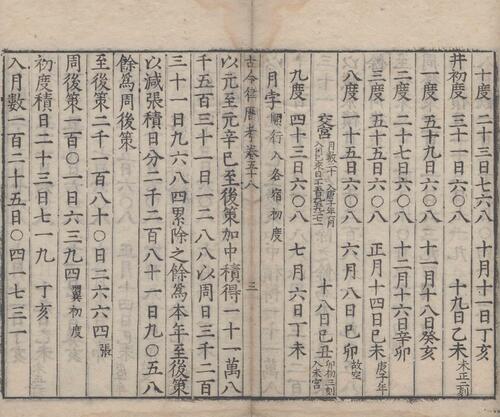 十度 二十三日七六八 十月十一日丁亥
井初度 三十一日六〇八 十九日乙未
一度 五十九日六〇八 十一月十八癸亥
二度 二十七日六〇八 十二月十六日辛卯
三度 五十五日六〇八 正月十四日己未 庚子年
八度 一十五日六〇八 六月八日己卯 故空
交宮 十八日己丑 卯初三刻入未宮
九度 四十三日六〇八 七月六日丁未
月孛 順行入各宿初度
古今律曆考卷五十八 三
以元至元辛巳至後策加中積得一十一萬八
千五百三十一日一二八八以周日三千二百
三十一日九六八四累除之餘為本年至後策
以減張積日分二千二百八十一日九〇五八
餘為周後策
至後策二千一百八十〇日二六六四 張
周後策一百〇一日六三九四 翼初度
初度積日二十三日七一九 丁亥
入月數一百二十五日〇四一七三一